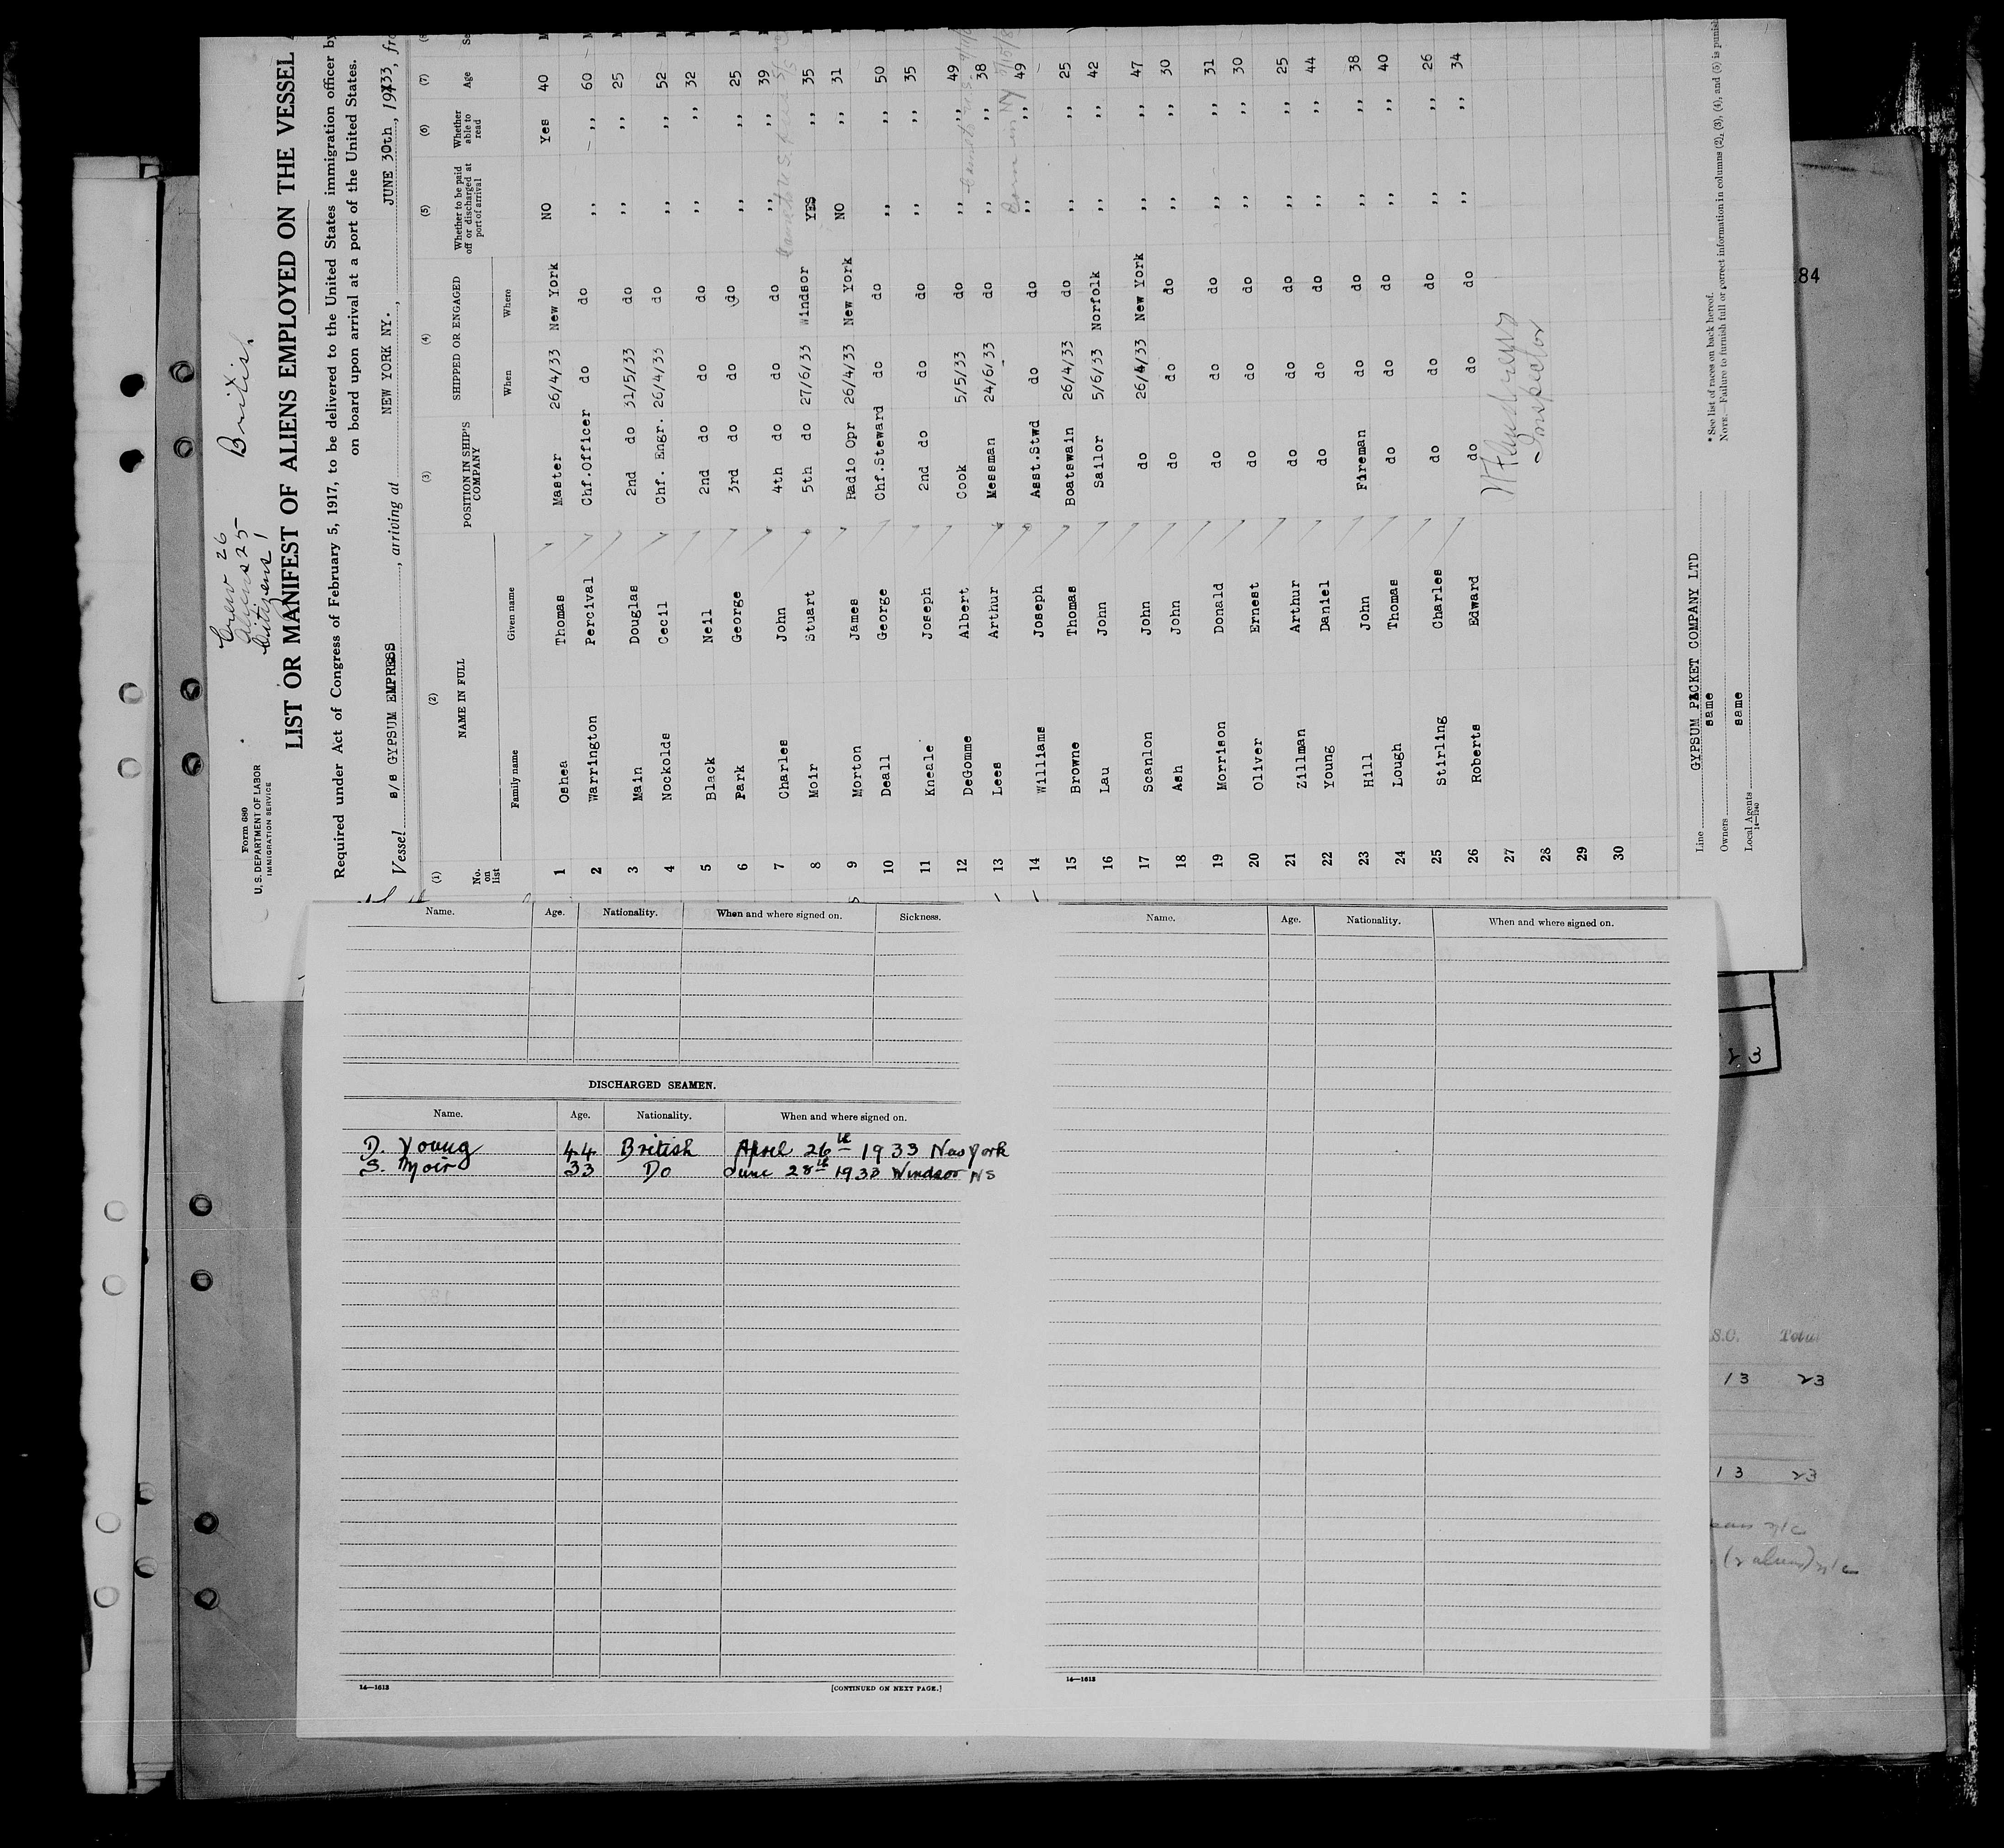 Crew 26
Aliens 25
Citizens 1
British
Form 680
U. S. DEPARTMENT OF LABOR
IMMIGRATION SERVICE
LIST OR MANIFEST OF ALIENS EMPLOYED ON THE VESSEL
Required under Act of Congress of February 5, 1917, to be delivered to the United States immigration officer by
on board upon arrival at a port of the United States.
Vessel s/s GYPSUM EMPRESS, arriving at NEW YORK NY., JUNE 30th, 1933, fro
(1) (2) (3) (4) (5) (6) (7) (8)
No. on list NAME IN FULL POSITION IN SHIP'S COMPANY SHIPPED OR ENGAGED Whether to be paid off or discharged at port of arrival Whether able to read Age Se
Family name Given name When Where
1 Oshea Thomas Master 26/4/33 New York NO Yes 40
2 Warrington Percival Chf.Officer do do ,, ,, 60
3 Main Douglas 2nd do 31/5/33 do ,, ,, 25
4 Nockolds Cecil Chf. Engr. 26/4/33 do ,, ,, 52
5 Black Neil 2nd do do do ,, ,, 32
6 Park George 3rd do do do ,, ,, 25
7 Charles John 4th do do do ,, ,, 39
8 Moir Stuart 5th do 27/6/33 Windsor YES ,, 35
9 Morton James Radio Opr 26/4/33 New York NO ,, 31
10 Deall George Chf.Steward do do ,, ,, 50
11 Kneale Joseph 2nd do do do ,, ,, 35
12 DeGomme Albert Cook 5/5/33 do ,, ,, 49
13 Lees Arthur Messman 24/6/33 do ,, ,, 38
14 Williams Joseph Asst.Stwd do do ,, ,, 49
15 Browne Thomas Boatswain 26/4/33 do ,, ,, 25
16 Lau John Sailor 5/6/33 Norfolk ,, ,, 42
17 Scanlon John do 26/4/33 New York ,, ,, 47
18 Ash John do do do ,, ,, 30
19 Morrison Donald do do do ,, ,, 31
20 Oliver Ernest do do do ,, ,, 30
21 Zillman Arthur do do do ,, ,, 25
22 Young Daniel do do do ,, ,, 44
23 Hill John Fireman do do ,, ,, 38
24 Lough Thomas do do do ,, ,, 40
25 Stirling Charles do do do ,, ,, 26
26 Roberts Edward do do do ,, ,, 34
27
28
29
30
Inspector
Line GYPSUM PACKET COMPANY LTD
Owners same
Local Agents same
14—1240
* See list of races on back hereof.
NOTE.—Failure to furnish full or correct information in columns (2), (3), (4), and (5) is punish
84
Name. Age. Nationality. When and where signed on. Sickness.
DISCHARGED SEAMEN.
Name. Age. Nationality. When and where signed on.
D. Young 44 British April 26th 1933 New York
S. Moir 33 Do June 28th 1933 Windsor NS
14—1613
[CONTINUED ON NEXT PAGE.]
Name. Age. Nationality. When and where signed on.
14—1613
23
S.O. Total
13 23
13 23